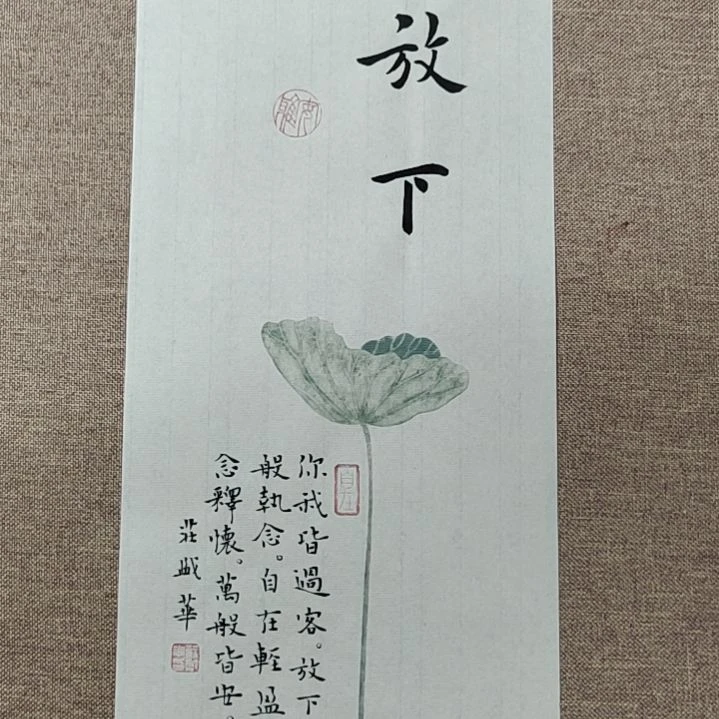 放下
你我皆過客。放下
般執念。自在輕盈
念釋懷。萬般皆安。
莊威華
自在